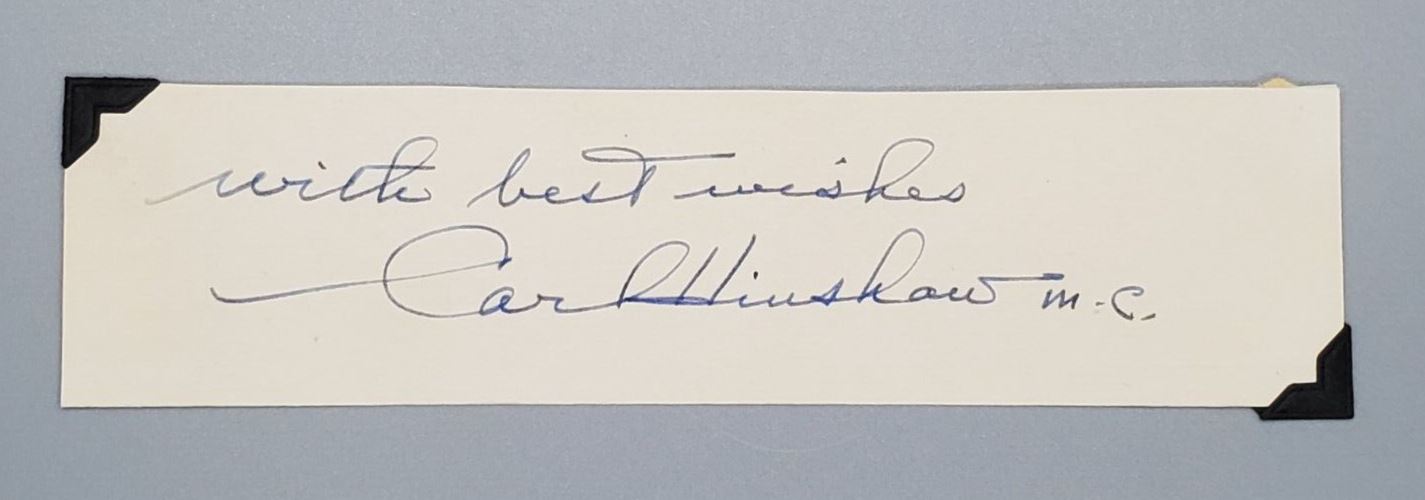 with best wishes
Carl Hinshaw m.c.